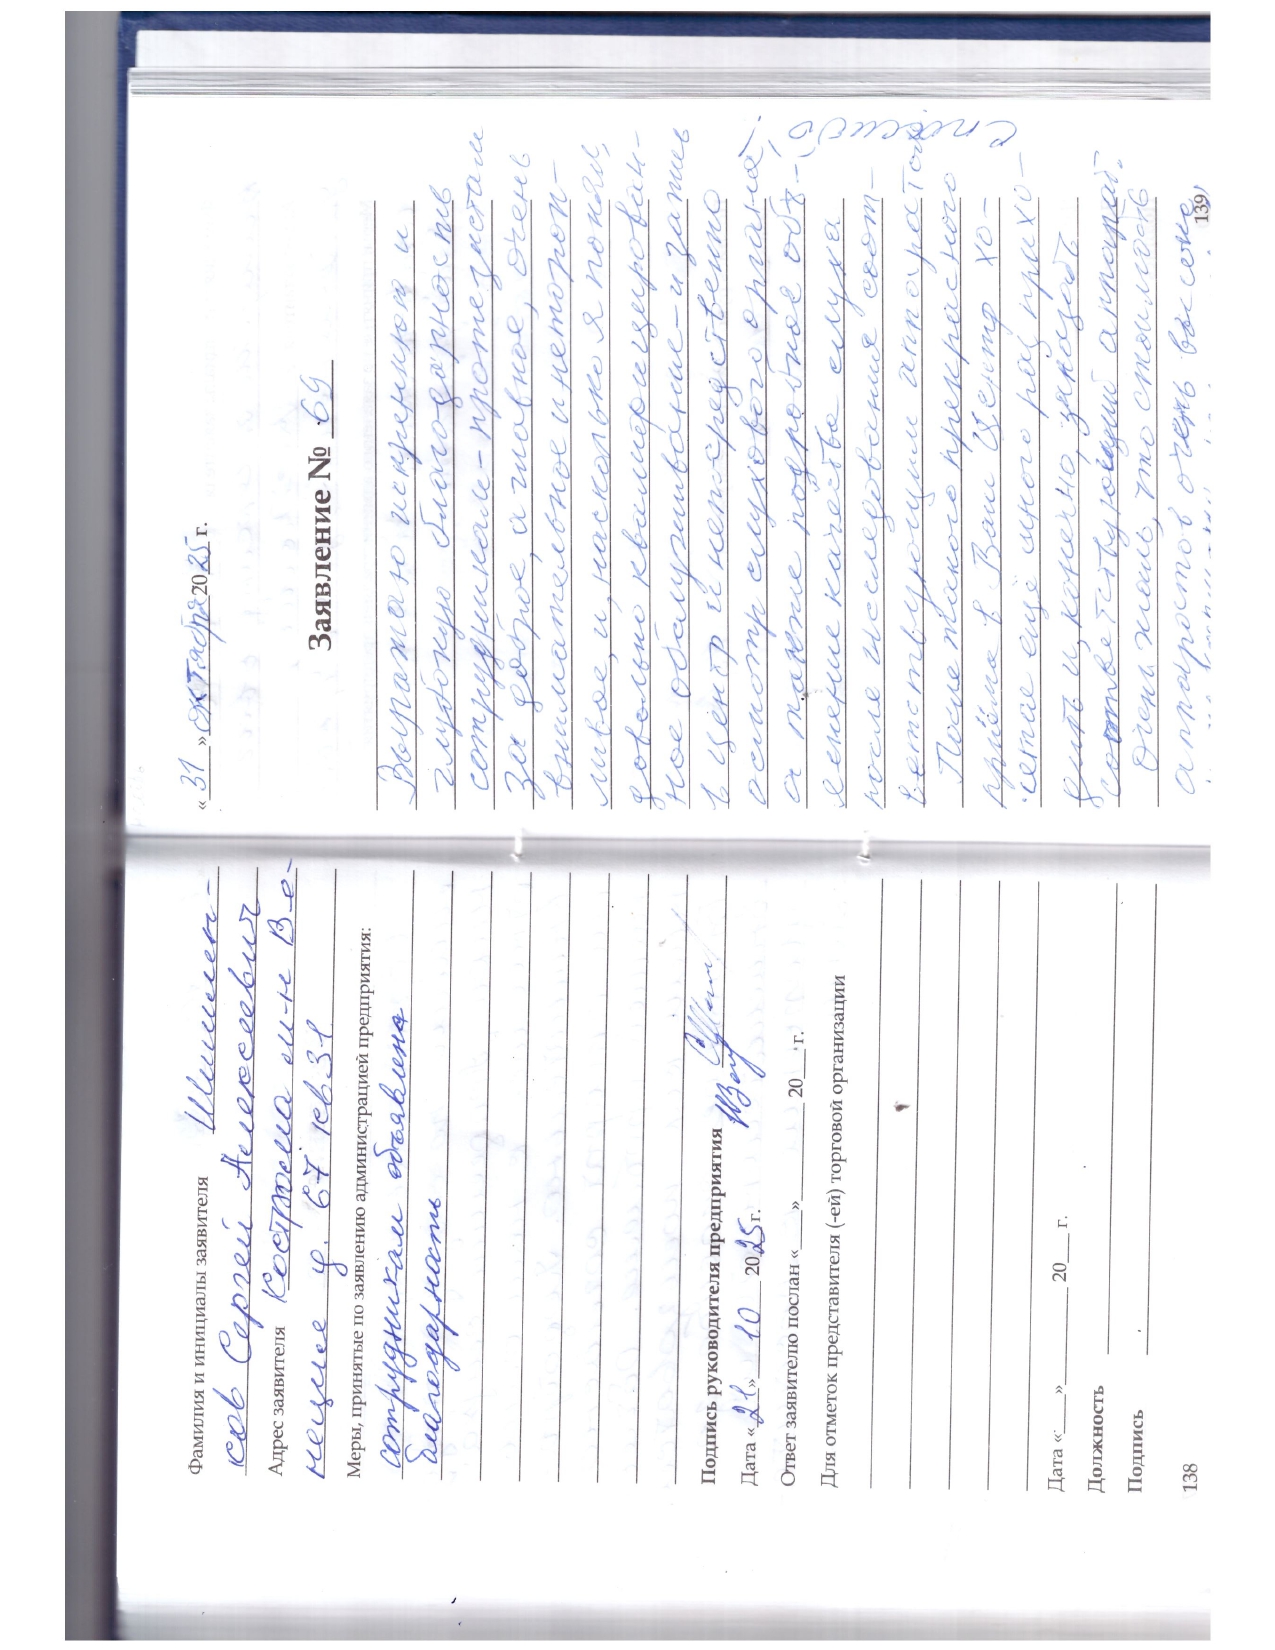 Фамилия и инициалы заявителя Шишлен-
ков Сергей Алексеевич
Адрес заявителя Кострома м-н Ве-
неция д. 67 кв 31
Меры, принятые по заявлению администрацией предприятия:
сотрудникам объявлена
благодарность
Подпись руководителя предприятия
Дата «21» 10 2025 г.
Ответ заявителю послан «___» ______ 20___ г.
Для отметок представителя (-ей) торговой организации
Дата «___» ______ 20___ г.
Должность
Подпись
138
«31» октября 2025 г.
Заявление № 69
Выражаю искреннюю и
глубокую благодарность
сотрудникам-протезистам
за доброе, а главное, очень
внимательное и нетороп-
ливое, и, насколько я понял,
довольно квалифицирован-
ное обслуживание - и запись
в центр и непосредственно
осмотр слухового органа,
а также подробное объ-
яснение качества слуха
после исследования соот-
ветствующим аппаратом
После такого прекрасного
приёма в Ваш Центр хо-
чется ещё много раз прихо-
дить и, конечно, заказать
соответствующий аппарат.
Очень жаль, что стоимость
аппаратов очень высокая
Спасибо
139